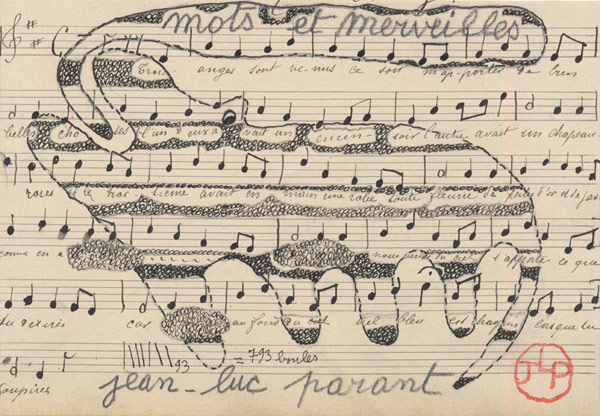 mots et merveilles
Trois anges sont ve-nus ce soir m'ap-porter de bien
belles cho ses l'un d'eux a vait un encen- soir l'autre avait un chapeau
roses le troi sième avait en main une robe toute fleurie de perles d'or et de jas
comme en a nous du ciel t'apporter ce que
tu désires car au fond du ciel bleu est chagrin lorsque tu
93 = 793 boules
soupires
jean-luc parant
JLP